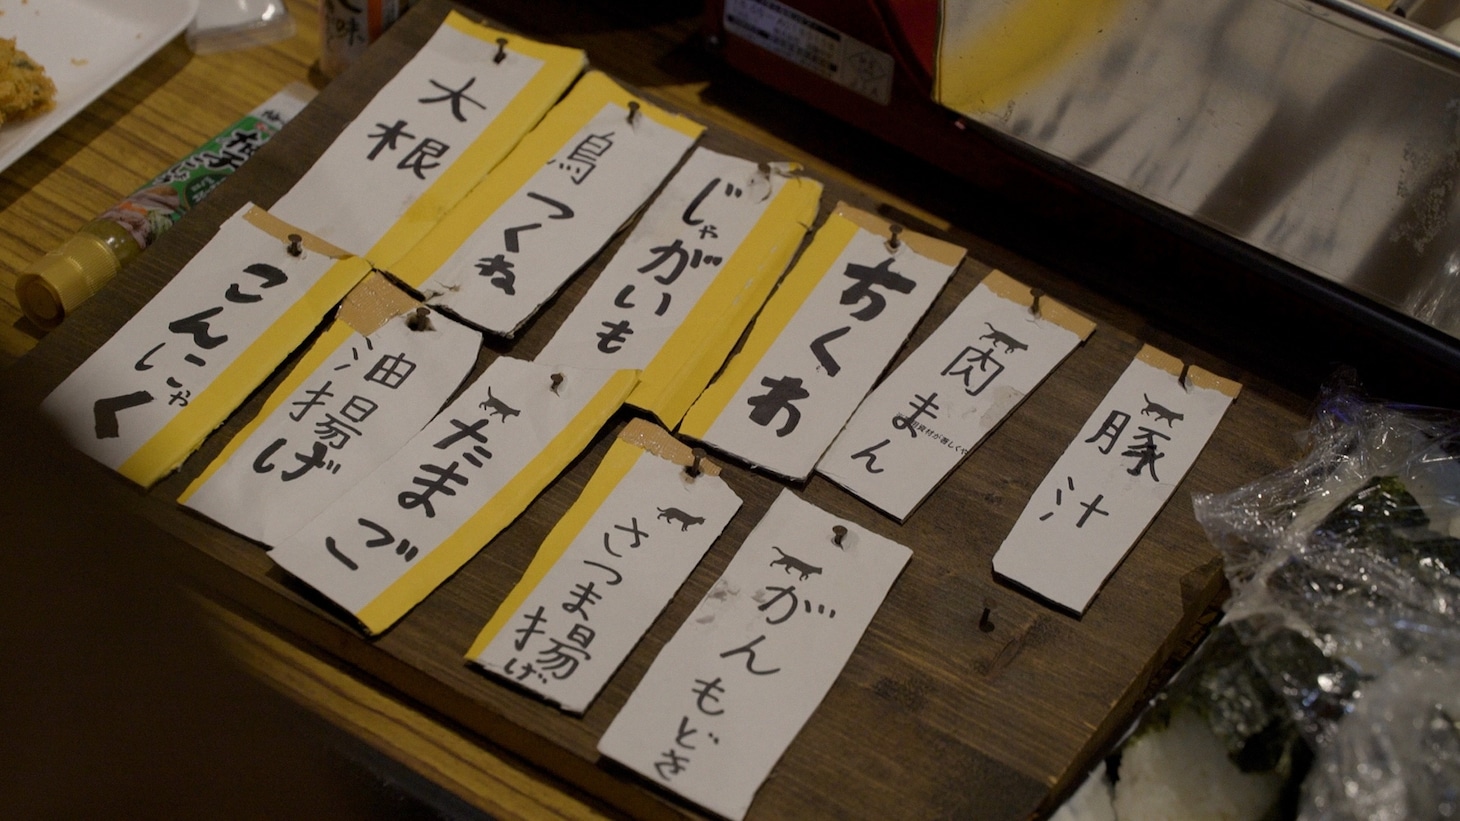 大根
鳥つくね
じゃがいも
ちくわ
肉まん
豚汁
こんにゃく
油揚げ
たまご
さつま揚げ
がんもどき
味